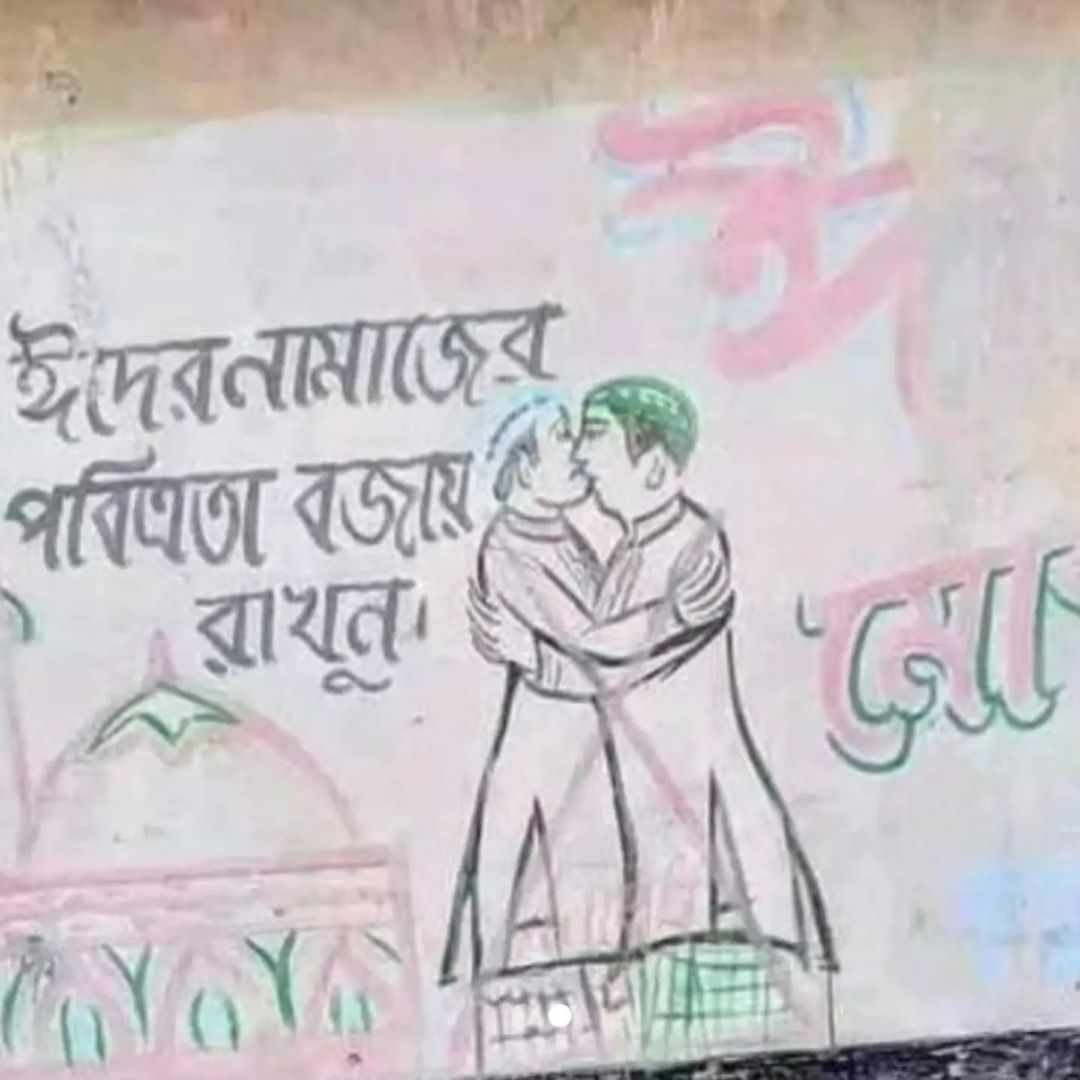 ঈ
ঈদের নামাজের
পবিত্রতা বজায়
রাখুন।